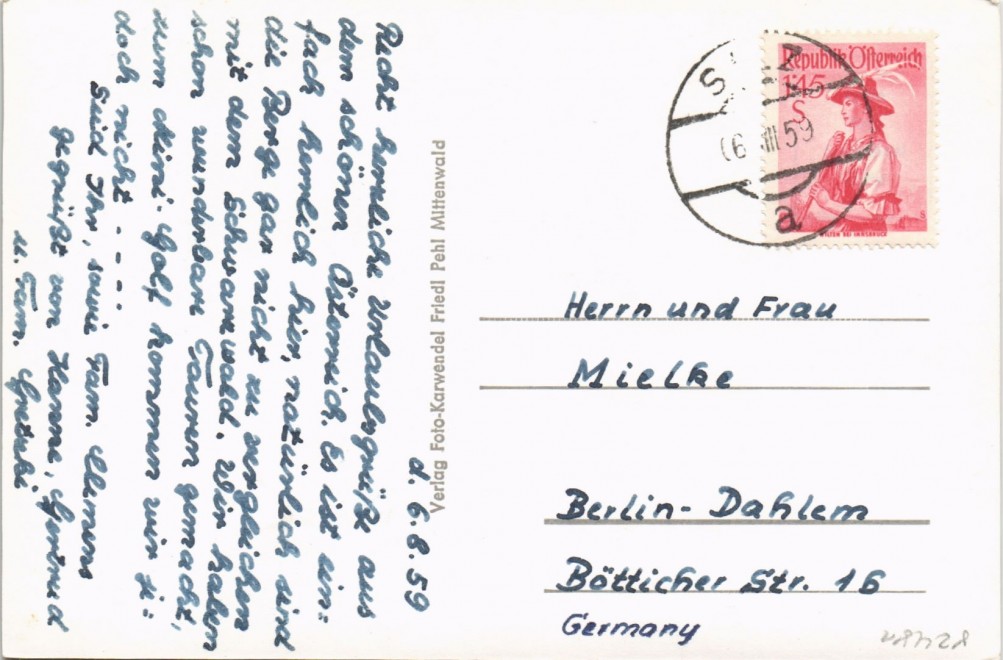 d. 6.8.59
Recht herzliche Urlaubsgrüße aus
dem schönen Österreich. Es ist ein=
fach herrlich hier, natürlich sind
die Berge gar nicht zu vergleichen
mit dem Schwarzwald. Wir haben
schon wunderbare Touren gemacht,
zum Mini-Golf kommen wir je=
doch nicht - - - -
Seid Ihr, sowie Fam. Clemens
gegrüßt von Hanne, Gertrud
u. Fam.
Verlag Foto-Karwendel Friedl Pehl Mittenwald
Republik Österreich
1·45
S
WILTEN BEI INNSBRUCK
VIII 59
a
Herrn und Frau
Mielke
Berlin-Dahlem
Bötticher Str. 16
Germany